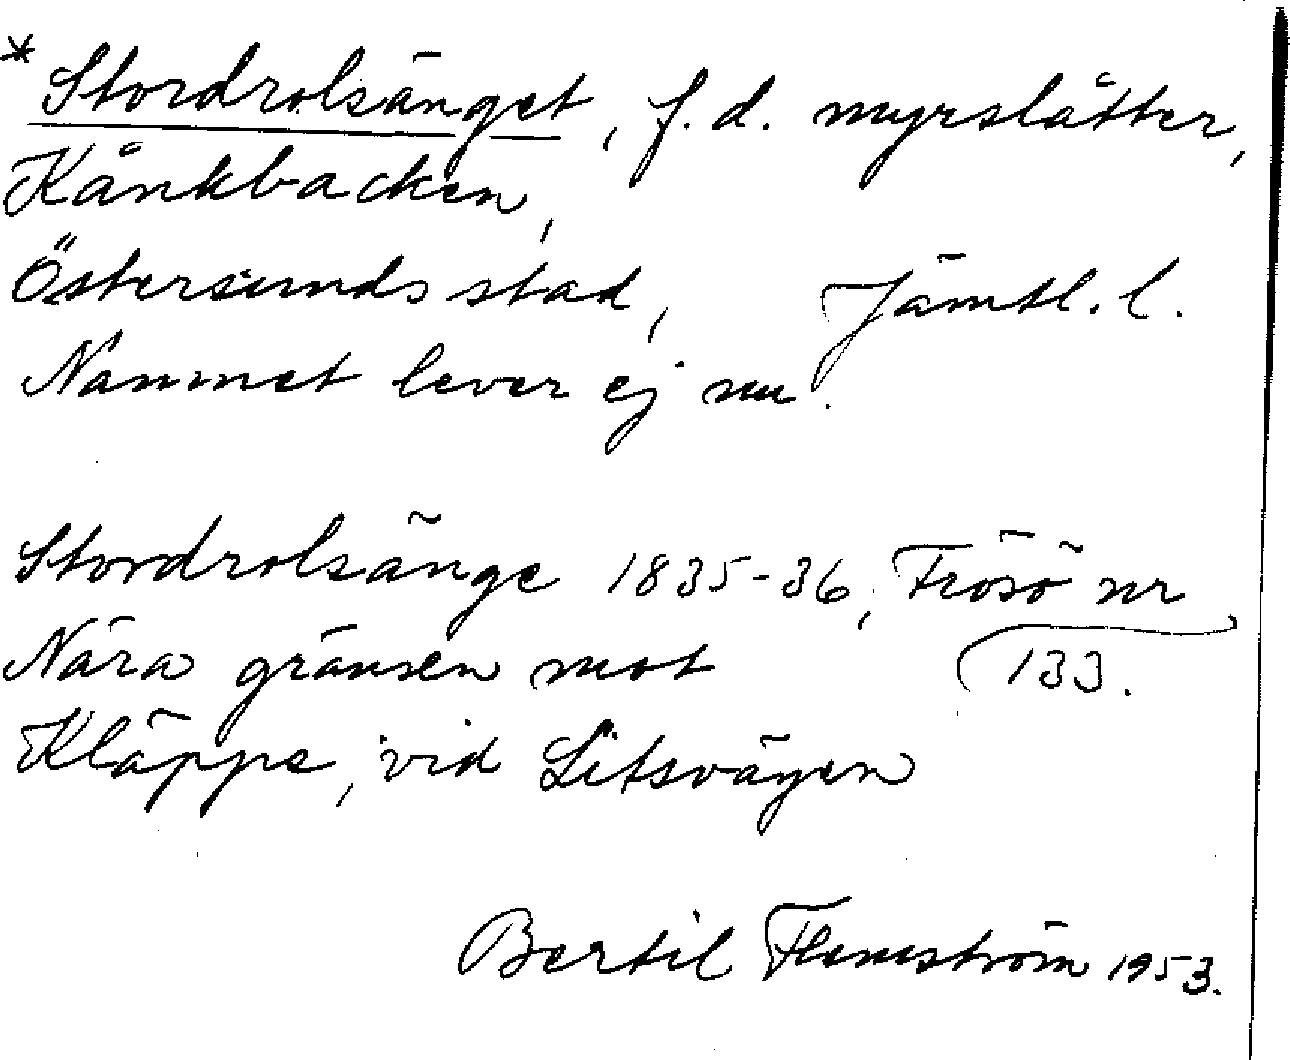 * Stordrolsänget, f.d. myrslåtter,
Kånkbacken,
Östersunds stad, Jämtl. l.
Namnet lever ej nu.
Stordrolsänge 1835-36, Frösö nr
133.
Nära gränsen mot
Kläppe, vid Litsvägen
Bertil Flemström 1953.